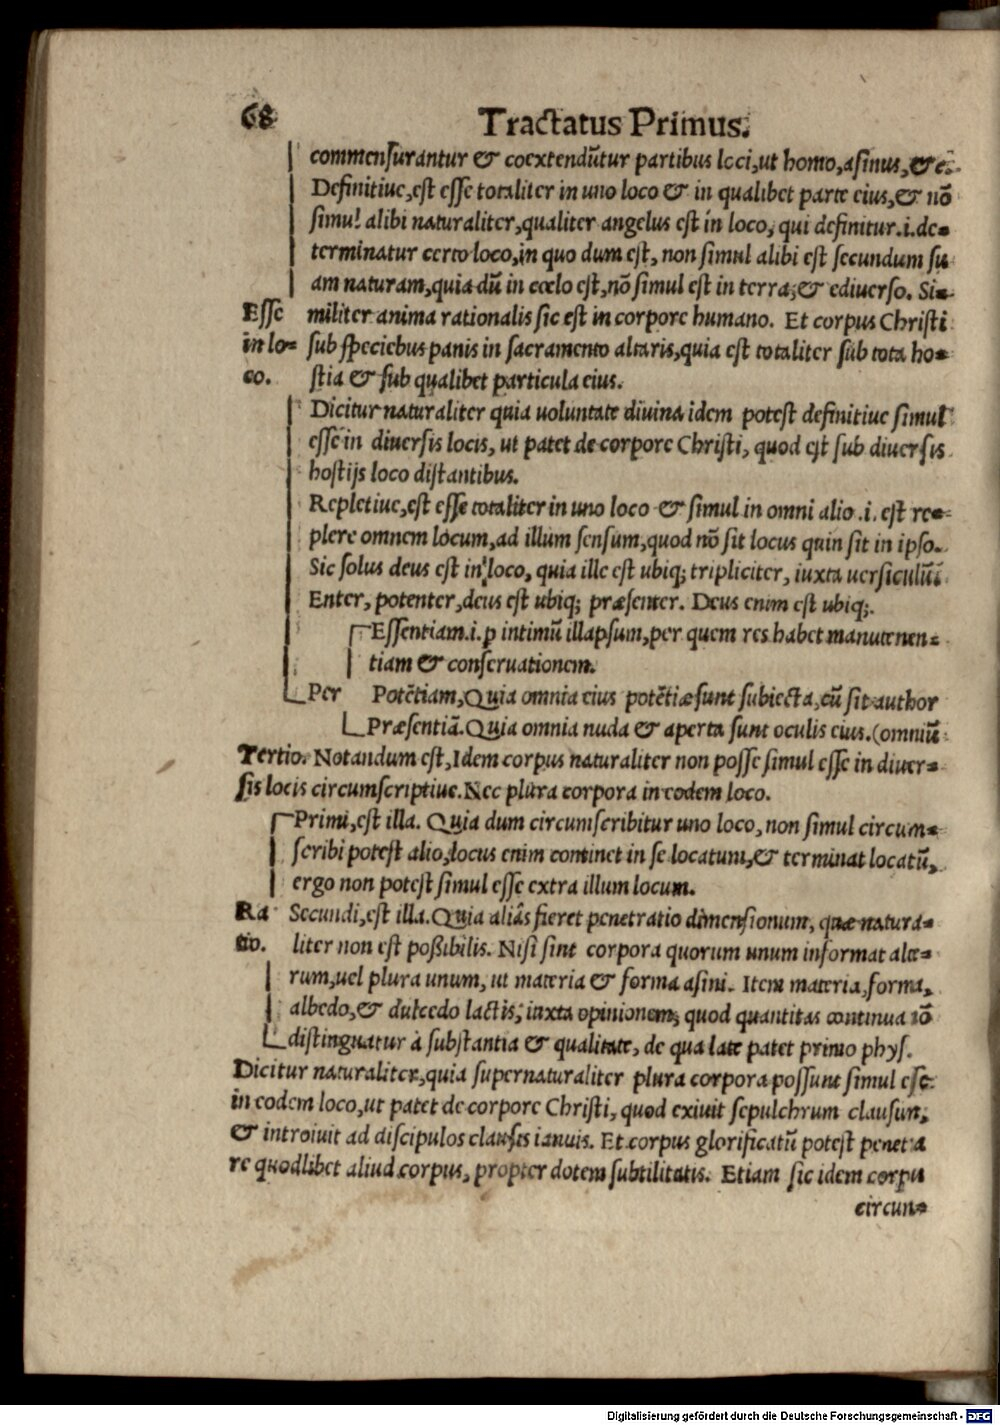 68 Tractatus Primus.
commensurantur & coextendũtur partibus loci, ut homo, asinus, &c.
Definitiue, est esse totaliter in uno loco & in qualibet parte eius, & nõ
simul alibi naturaliter, qualiter angelus est in loco, qui definitur .i. de-
terminatur certo loco, in quo dum est, non simul alibi est secundum su
am naturam, quia dũ in cœlo est, nõ simul est in terra, & ediuerso. Si-
Esse militer anima rationalis sic est in corpore humano. Et corpus Christi
in lo- sub speciebus panis in sacramento altaris, quia est totaliter sub tota ho-
co. stia & sub qualibet particula eius.
Dicitur naturaliter quia uoluntate diuina idem potest definitiue simul
esse in diuersis locis, ut patet de corpore Christi, quod est sub diuersis
hostijs loco distantibus.
Repletiue, est esse totaliter in uno loco & simul in omni alio .i. est re-
plere omnem locum, ad illum sensum, quod nõ sit locus quin sit in ipso.
Sic solus deus est in loco, quia ille est ubiq; tripliciter, iuxta uersiculũ:
Enter, potenter, deus est ubiq; præsenter. Deus enim est ubiq;.
Essentiam .i. p intimũ illapsum, per quem res habet manutenen-
tiam & conseruationem.
Per Potẽtiam, Quia omnia eius potẽtiæ sunt subiecta, cũ sit author
Præsentiã. Quia omnia nuda & aperta sunt oculis eius. (omniũ
Tertio. Notandum est, Idem corpus naturaliter non posse simul esse in diuer-
sis locis circumscriptiue. Nec plura corpora in eodem loco.
Primi, est illa. Quia dum circumscribitur uno loco, non simul circum-
scribi potest alio, locus enim continet in se locatum, & terminat locatũ,
ergo non potest simul esse extra illum locum.
Ra Secundi, est illa. Quia aliâs fieret penetratio dimensionum, quæ natura-
tio. liter non est poßibilis. Nisi sint corpora quorum unum informat alte-
rum, uel plura unum, ut materia & forma asini. Item materia, forma,
albedo, & dulcedo lactis, iuxta opinionem, quod quantitas continua nõ
distinguatur à substantia & qualitate, de qua late patet primo phys.
Dicitur naturaliter, quia supernaturaliter plura corpora possunt simul esse
in eodem loco, ut patet de corpore Christi, quod exiuit sepulchrum clausum,
& introiuit ad discipulos clausis ianuis. Et corpus glorificatũ potest penetra
re quodlibet aliud corpus, propter dotem subtilitatis. Etiam sic idem corpu
circun-
Digitalisierung gefördert durch die Deutsche Forschungsgemeinschaft - DFG